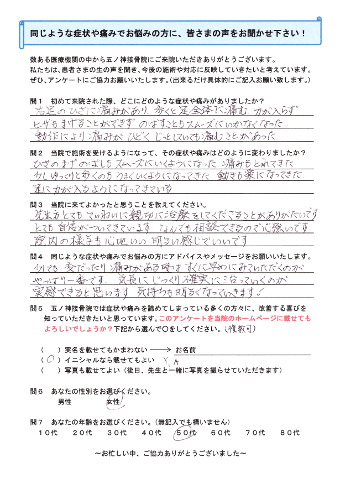 同じような症状や痛みでお悩みの方に、皆さまの声をお聞かせ下さい！
数ある医療機関の中から五ノ神接骨院にご来院いただきありがとうございます。
私たちは、患者さまの生の声を聞き、今後の施術や対応に反映していきたいと考えています。
ぜひ、アンケートにご協力お願いします。（出来るだけ具体的にご記入お願い致します。）
問１　初めて来院された際、どこにどのような症状や痛みがありましたか？
右足のひざに痛みがあり 歩くと足全体に痛む 力が入らず
ヒザもまげることができず のばすこともスムーズにいかなくなった
動作により痛みがひどく じっとしていても痛むことがあった
問２　当院で施術を受けるようになって、その症状や痛みはどのように変わりましたか？
ひざのまげのばしもスムーズにいくようになった 痛みもとれてきた
少しゆっくりと歩くのもうまくいくようになってきた 動きも楽になってきた
足に力が入るようになってきている
問３　当院に来てよかったと思うことを教えてください。
先生方とてもていねいに親切に治療をしてくださることがありがたいです
とても信頼がついてきています なんでも相談できるので心強いです
院内の様子も心地いい 明るい感じでいいです
問４　同じような症状や痛みでお悩みの方にアドバイスやメッセージをお願いいたします。
少しでも変だったり 痛みがある時はすぐに早めにみていただくのが
やっぱり一番です 気長にじっくり確実になっていくのが
実感できると思います 気持ちも明るくなっていきます
問５　五ノ神接骨院では症状や痛みを諦めてしまっている多くの方々に、改善する喜びを
知っていただきたいと思っています。このアンケートを当院のホームページに載せても
よろしいでしょうか？下記から選んで○をしてください。（複数可）
（　）実名を載せてもかまわない ――→ お名前
（○）イニシャルなら載せてもよい Y.A
（　）写真も載せてよい（後日、先生と一緒に写真を撮らせていただきます）
問６　あなたの性別をお選びください。
男性　女性
問７　あなたの年齢をお選びください。（無記入でも構いません）
１０代　２０代　３０代　４０代　５０代　６０代　７０代　８０代
～お忙しい中、ご協力ありがとうございました～